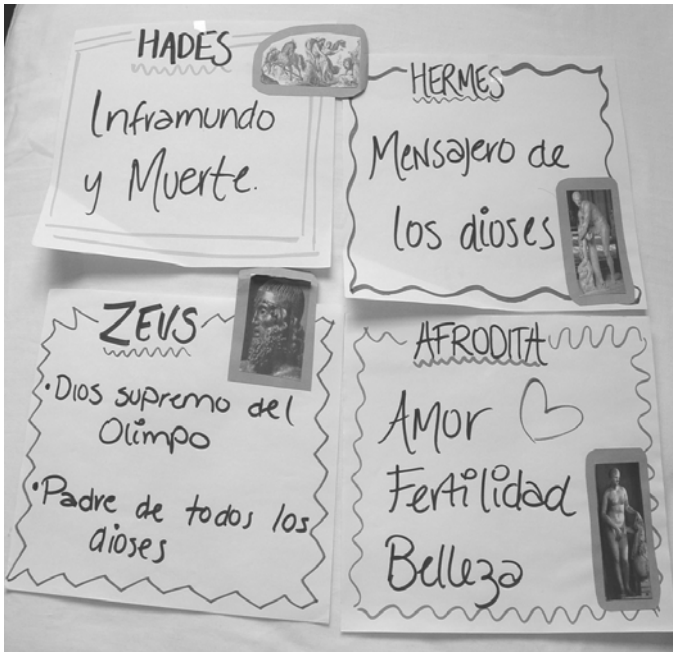 HADES
Inframundo
y Muerte.
HERMES
Mensajero de
los dioses
ZEUS
• Dios supremo del
Olimpo
• Padre de todos los
dioses
AFRODITA
Amor
Fertilidad
Belleza